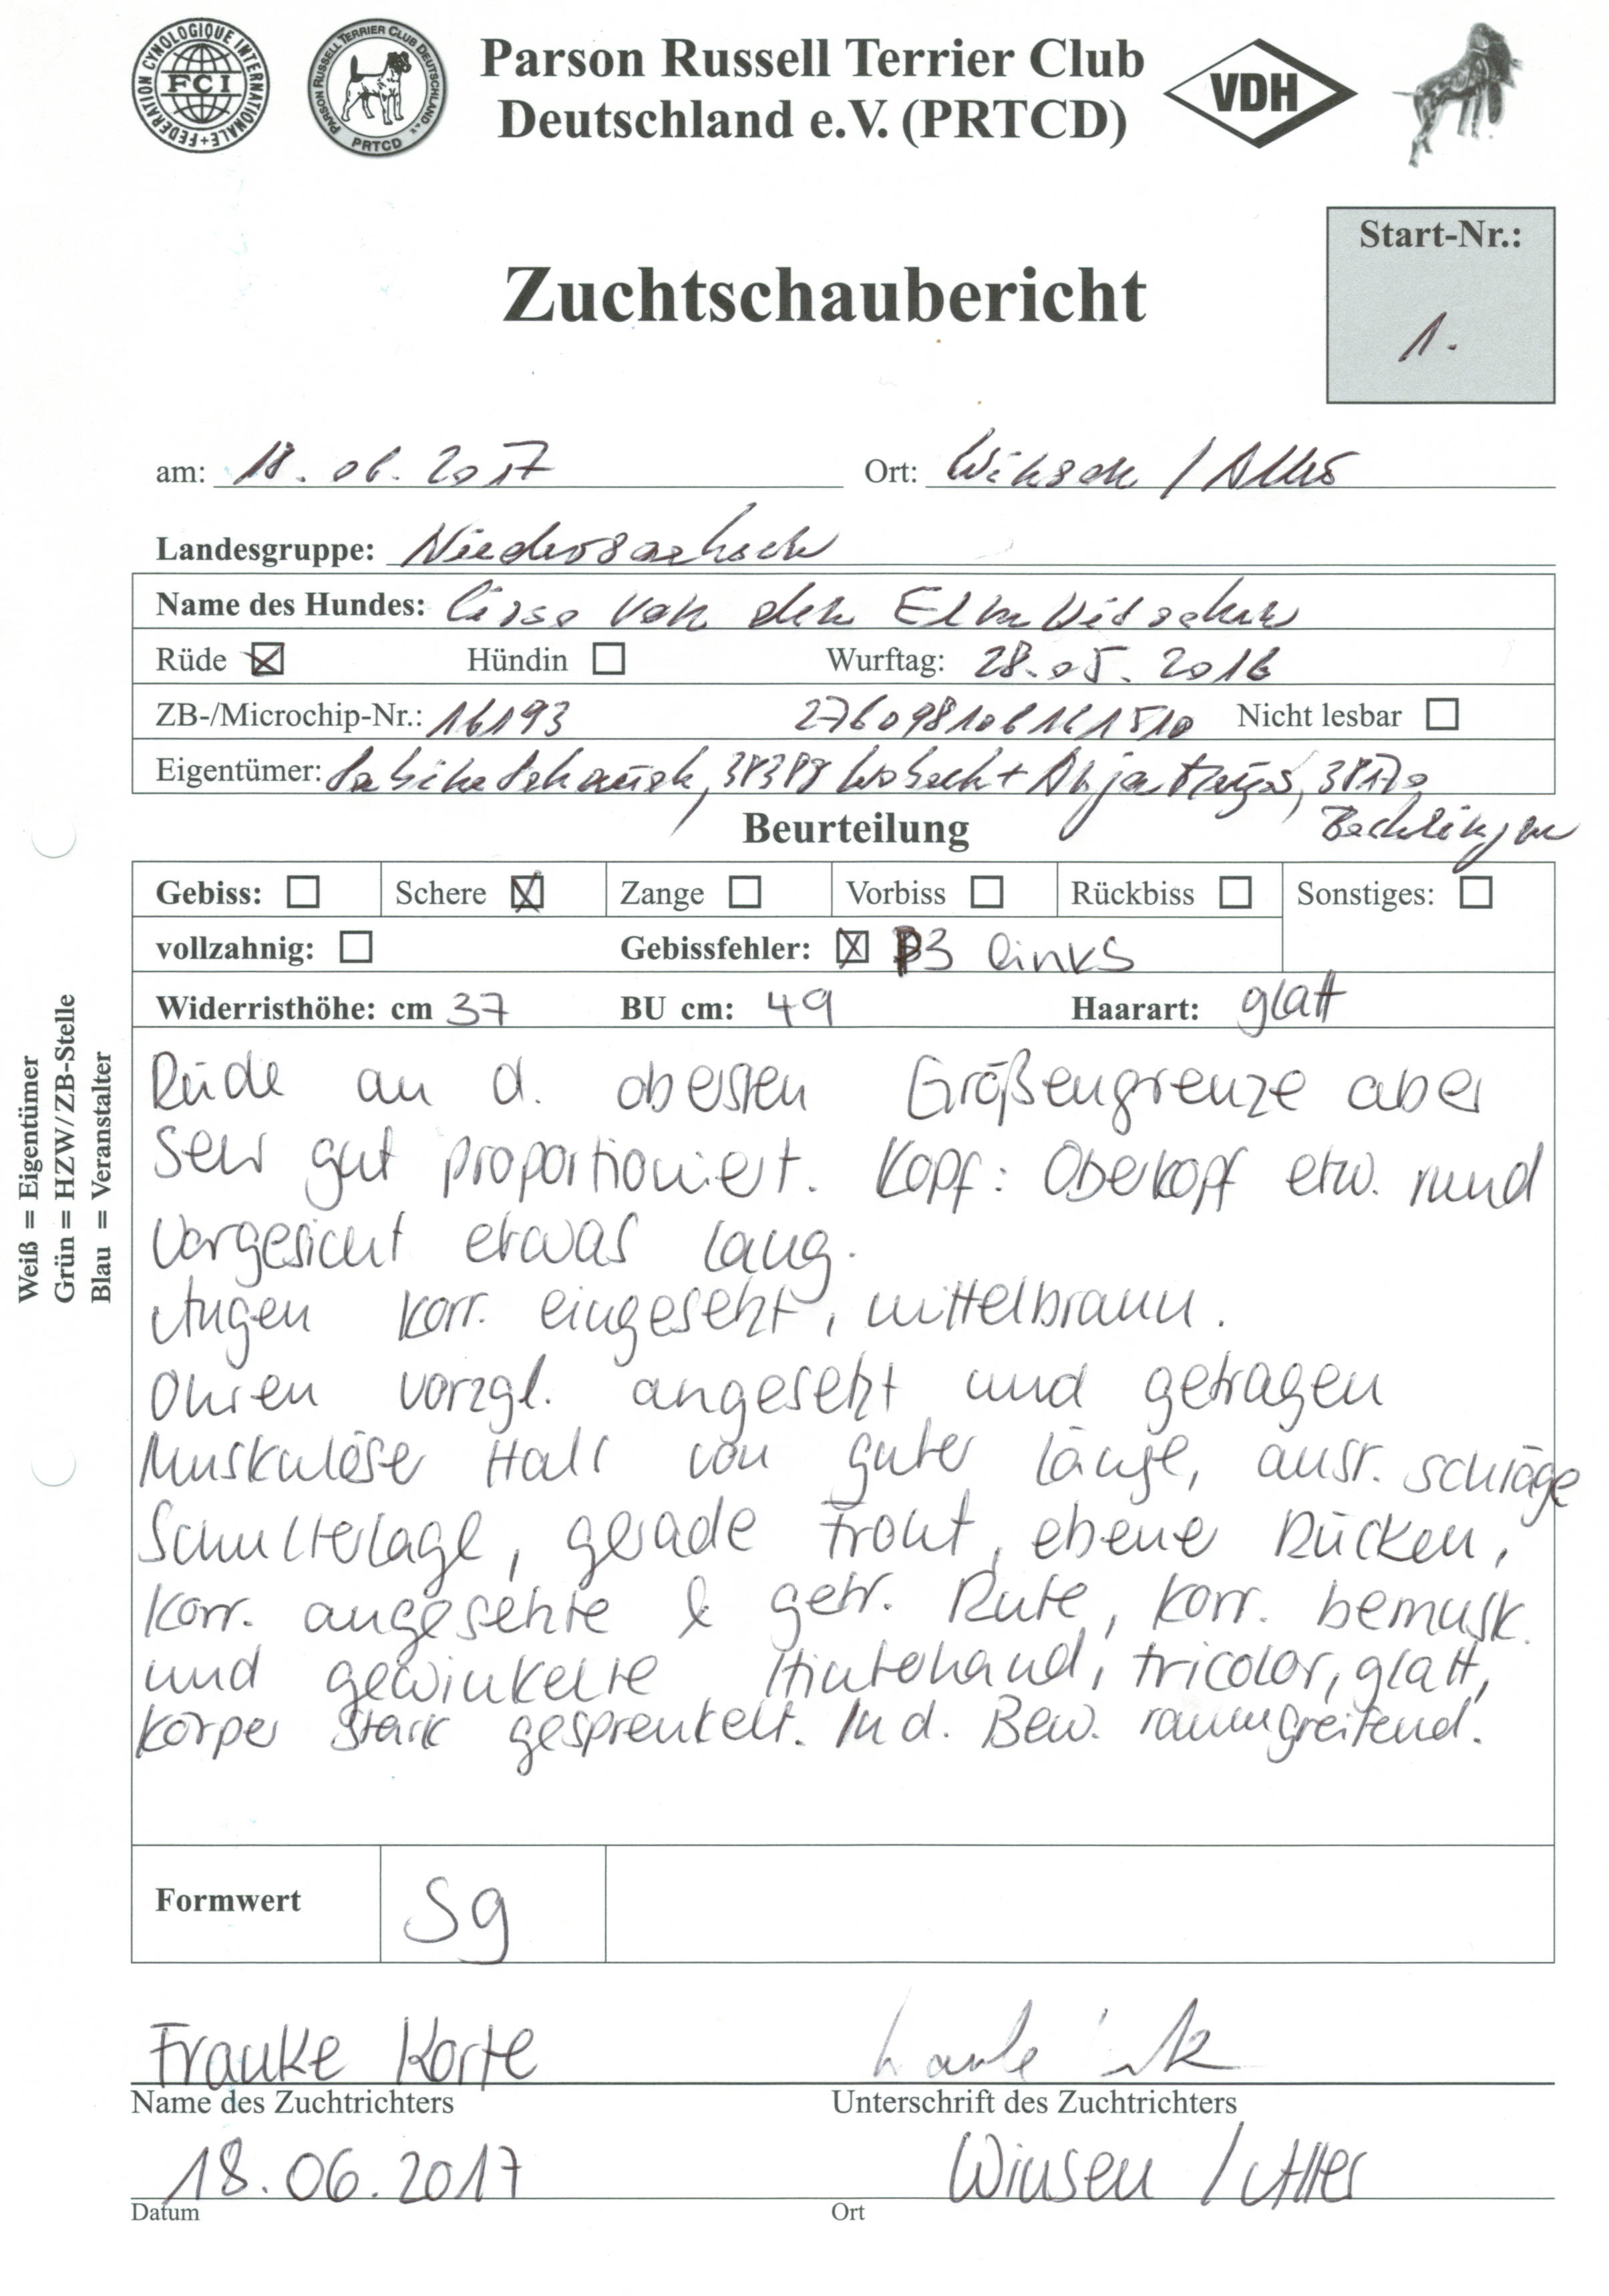 FEDERATION CYNOLOGIQUE INTERNATIONALE
FCI
PARSON RUSSELL TERRIER CLUB DEUTSCHLAND e.V.
PRTCD
Parson Russell Terrier Club
Deutschland e.V. (PRTCD)
VDH
Start-Nr.:
1.
Zuchtschaubericht
am: 18.06.2017 Ort: Winsen / Aller
Landesgruppe: Niedersachsen
Name des Hundes: von den Elm
Rüde ☒ Hündin ☐ Wurftag: 28.05.2016
ZB-/Microchip-Nr.: 16193 276098106161510 Nicht lesbar ☐
Eigentümer: 38170
Beurteilung
Gebiss: ☐ Schere ☒ Zange ☐ Vorbiss ☐ Rückbiss ☐ Sonstiges: ☐
vollzahnig: ☐ Gebissfehler: ☒ P3 links
Widerristhöhe: cm 37 BU cm: 49 Haarart: glatt
Rüde an d. obersten Größengrenze aber
sehr gut proportioniert. Kopf: Oberkopf etw. rund
Vorgesicht etwas lang.
Augen korr. eingesetzt, mittelbraun.
Ohren vorzgl. angesetzt und getragen
Muskulöser Hals von guter Länge, ausr. schräge
Schulterlage, gerade Front, ebene Rücken,
korr. angesetzte & getr. Rute, korr. bemusk.
und gewinkelte Hinterhand, tricolor, glatt,
Körper stark gesprenkelt. In d. Bew. raumgreifend.
Formwert Sg
Weiß = Eigentümer
Grün = HZW/ZB-Stelle
Blau = Veranstalter
Frauke Korte
Name des Zuchtrichters Unterschrift des Zuchtrichters
18.06.2017 Winsen / Aller
Datum Ort